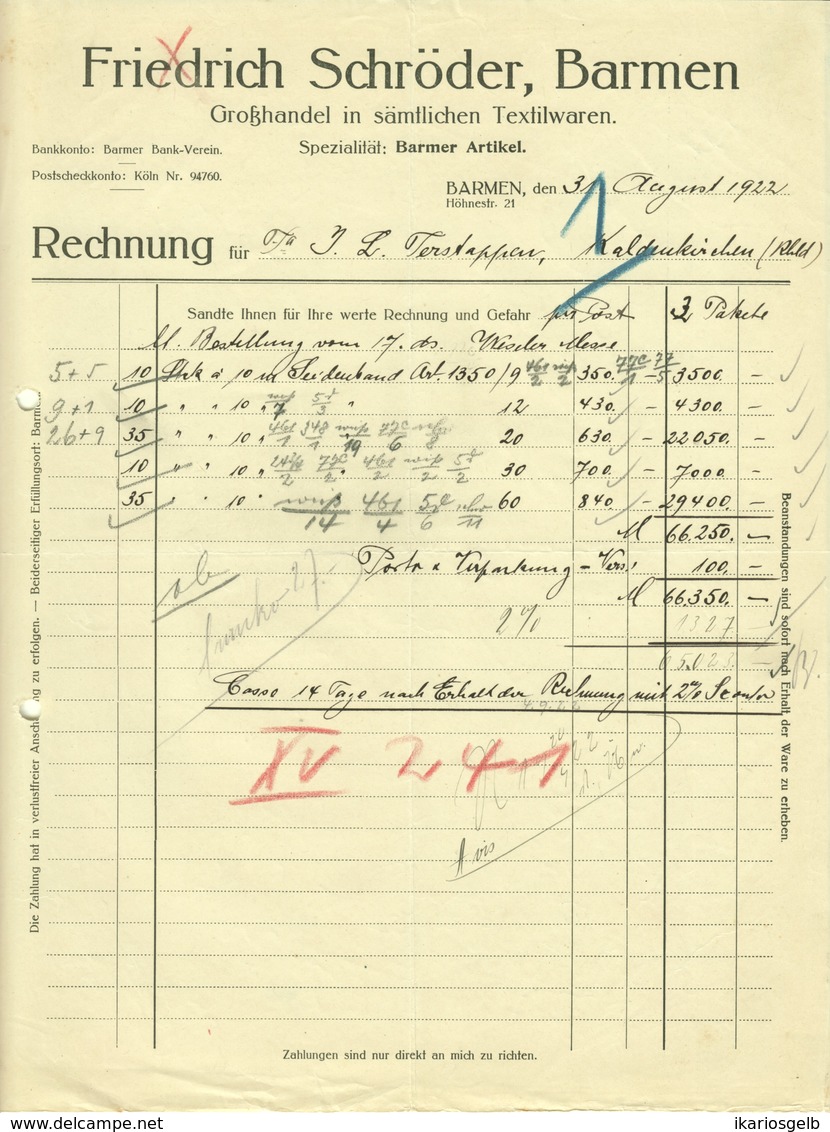 Friedrich Schröder, Barmen
Großhandel in sämtlichen Textilwaren.
Bankkonto: Barmer Bank-Verein.
Spezialität: Barmer Artikel.
Postscheckkonto: Köln Nr. 94760.
BARMEN, den 31 August 1922
Höhnestr. 21
Rechnung für Fa J. L. Terstappen, Kaldenkirchen (Rhld)
Sandte Ihnen für Ihre werte Rechnung und Gefahr per Post 3 Pakete
lt. Bestellung vom 17. ds. Messe
5+5 10 Stck à 10 m Seidenband Art. 1350/9 350. — 3500. —
9+1 10 " " 10 " " 12 430. — 4300. —
26+9 35 " " 10 " 20 630. — 22050. —
10 " " 10 " " 30 700. — 7000. —
35 " " 10 " 60 840. — 29400. —
M 66.250. —
Porto u Verpackung — Vers. 100. —
M 66.350. —
ab
franko 27.-
2% 1327
65.023. —
Casso 14 Tage nach Erhalt der Rechnung mit 2% Sconto
4.9.22
XV 241
Avis
Die Zahlung hat in verlustfreier Ansch ng zu erfolgen. — Beiderseitiger Erfüllungsort: Barmen
Beanstandungen sind sofort nach Erhalt der Ware zu erheben.
Zahlungen sind nur direkt an mich zu richten.
www.delcampe.net
ikariosgelb